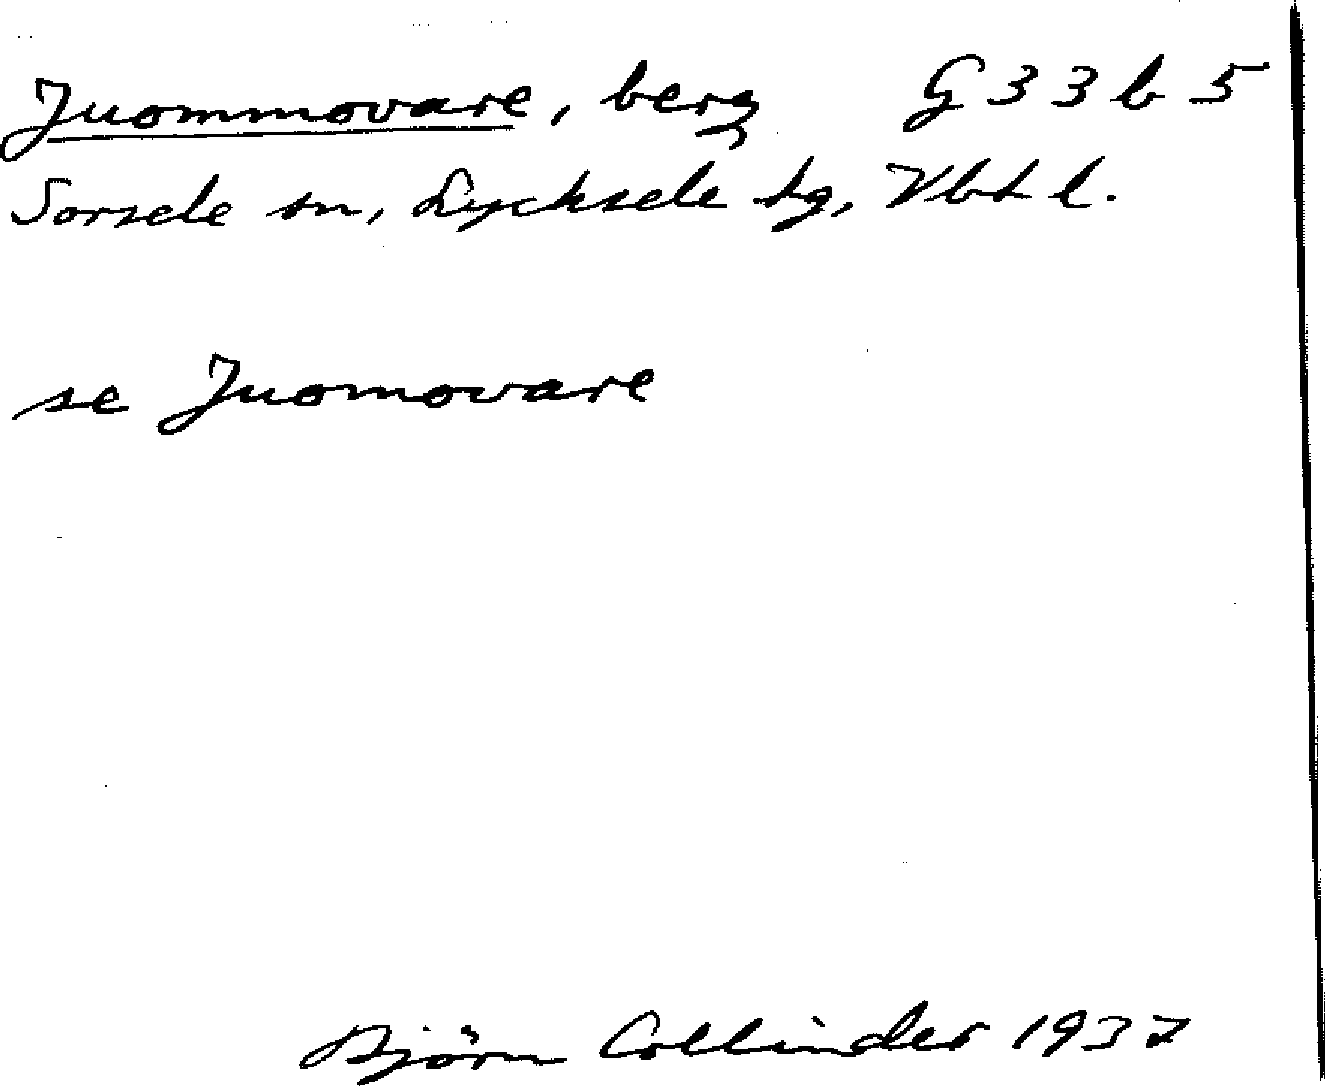 Juommovare, berg G33b5
Sorsele sn, Lycksele tg, Vbt l.
se Juomovare
Björn Collinder 1937